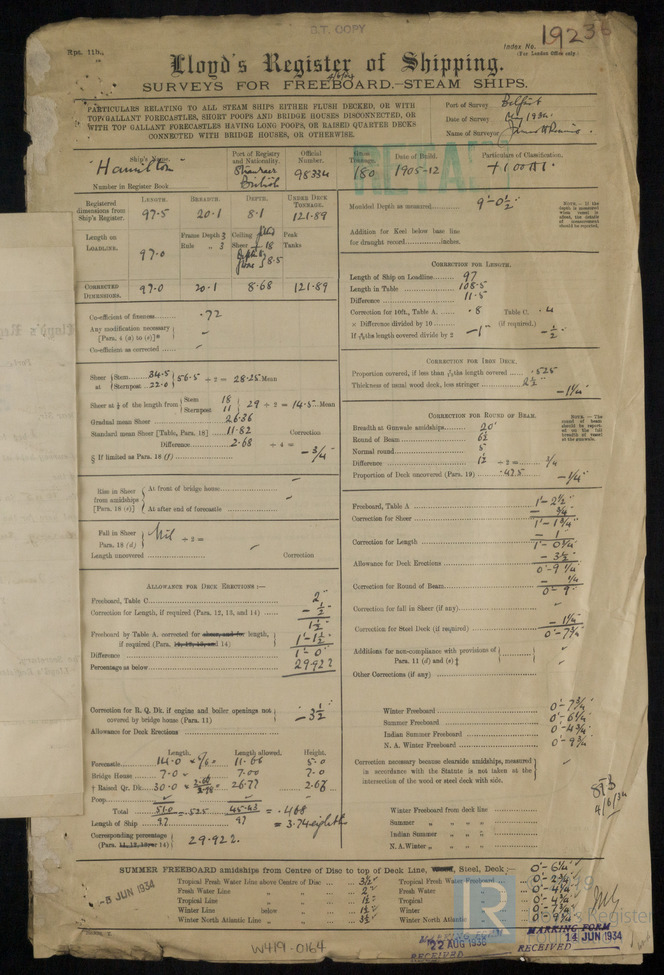 B.T. COPY
Rpt. 11b.
Index No. 19236
(For London Office only.)
Lloyd's Register of Shipping.
4/6/34
SURVEYS FOR FREEBOARD.—STEAM SHIPS.
PARTICULARS RELATING TO ALL STEAM SHIPS EITHER FLUSH DECKED, OR WITH
TOPGALLANT FORECASTLES, SHORT POOPS AND BRIDGE HOUSES DISCONNECTED, OR
WITH TOP GALLANT FORECASTLES HAVING LONG POOPS, OR RAISED QUARTER DECKS
CONNECTED WITH BRIDGE HOUSES, OR OTHERWISE.
Port of Survey Belfast
Date of Survey 1934.
Name of Surveyor
Ship's Name. Port of Registry and Nationality. Official Number. Gross Tonnage. Date of Build. Particulars of Classification.
"Hamilton" British 98334 180 1905-12 +100A1.
Number in Register Book
Registered dimensions from Ship's Register. LENGTH. 97.5 BREADTH. 20.1 DEPTH. 8.1 UNDER DECK TONNAGE. 121.89
Length on LOADLINE. 97.0 Frame Depth 3 Rule „ 3 Ceiling Sheer 18 8.5 Peak Tanks
CORRECTED DIMENSIONS. 97.0 20.1 8.68 121.89
Co-efficient of fineness .72
Any modification necessary [Para. 4 (a) to (e)]*
Co-efficient as corrected
Sheer at { Stem 34.5 Sternpost 22.0 } 56.5 ÷ 2 = 28.25 Mean
Sheer at ⅛ of the length from { Stem 18 Sternpost 11 } 29 ÷ 2 = 14.5 Mean
Gradual mean Sheer 26.36
Standard mean Sheer [Table, Para. 18] 11.82 Correction
Difference 2.68 ÷ 4 =
§ If limited as Para. 18 (f) – ¾
Rise in Sheer from amidships [Para. 18 (e)] { At front of bridge house
At after end of forecastle
Fall in Sheer Para. 18 (d) } Nil ÷ 2 =
Length uncovered Correction
ALLOWANCE FOR DECK ERECTIONS :—
Freeboard, Table C 2"
Correction for Length, if required (Para. 12, 13, and 14) – ½"
1½"
Freeboard by Table A. corrected for sheer, and for length, if required (Para. 12, 13, and 14) 1'-1½"
Difference 1'-0"
Percentage as below 29.922
Correction for R. Q. Dk. if engine and boiler openings not covered by bridge house (Para. 11) – 3½"
Allowance for Deck Erections
Length. Length allowed. Height.
Forecastle 14.0 11.66 5.0
Bridge House 7.0 7.00 7.0
† Raised Qr. Dk. 30.0 26.77 2.68
Poop
Total 51.0 .525 45.43 = .468
Length of Ship 97 97 = 3.74 eighths
Corresponding percentage (Para. 11, 12, 13, or 14) } 29.922.
Moulded Depth as measured 9'-0½"
NOTE.—If the depth is measured when vessel is afloat, the details of measurement should be reported.
Addition for Keel below base line
for draught record inches.
CORRECTION FOR LENGTH.
Length of Ship on Loadline 97
Length in Table 108.5
Difference 11.5
Correction for 10ft., Table A. .8 Table C. .4
× Difference divided by 10 (if required.)
If 6/10ths length covered divide by 2 –1" – ½"
CORRECTION FOR IRON DECK.
Proportion covered, if less than 7/10ths length covered .525
Thickness of usual wood deck, less stringer 2½" –1¼"
CORRECTION FOR ROUND OF BEAM.
Breadth at Gunwale amidships 20'
Round of Beam 6½
Normal round 5"
Difference 1½ ÷ 2 = ¾
Proportion of Deck uncovered (Para. 19) .475 – ¼"
NOTE.—The round of beam should be reported on the full breadth of vessel at the gunwale.
Freeboard, Table A 1'-2½"
– ¾"
Correction for Sheer 1'-1¾"
– 1
Correction for Length 1'-0¾"
– 3½
Allowance for Deck Erections 0'-9¼"
– ¼
Correction for Round of Beam 0'-9"
Correction for fall in Sheer (if any)
– 1¼
Correction for Steel Deck (if required) 0'-7¾"
Additions for non-compliance with provisions of Para. 11 (d) and (e) ‡
Other Corrections (if any)
Winter Freeboard 0'-7¾"
Summer Freeboard 0'-6¼"
Indian Summer Freeboard 0'-4¾"
N. A. Winter Freeboard 0'-9¾"
Correction necessary because clearside amidships, measured in accordance with the Statute is not taken at the intersection of the wood or steel deck with side.
4/6/34
Winter Freeboard from deck line
Summer „ „ „ „
Indian Summer „ „ „ „
N.A. Winter „ „ „ „
SUMMER FREEBOARD amidships from Centre of Disc to top of Deck Line, Wood, Steel, Deck 0'-6¼"
Tropical Fresh Water Line above Centre of Disc 3½" Tropical Fresh Water Freeboard 0'-2¾"
Fresh Water Line „ „ 2" Fresh Water „ 0'-4¼"
Tropical Line „ „ 1½" Tropical „ 0'-4¾"
Winter Line below „ 1½" Winter „ 0'-7¾"
Winter North Atlantic Line „ „ 3½" Winter North Atlantic „ 0'-9¾"
-8 JUN 1934
LR
Lloyd's Register
MARKING FORM
22 AUG 1936
RECEIVED
MARKING FORM
RECEIVED 14 JUN 1934
W419-0164